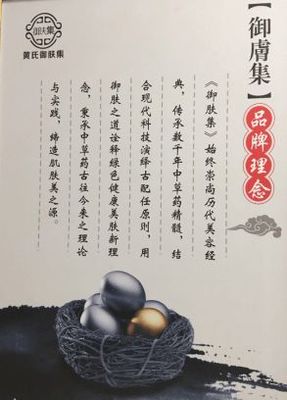 【御膚集】
品牌理念
《御肤集》始终崇尚历代美容经
典，传承数千年中草药精髓，结
合现代科技演绎古配任原则，用
御肤之道诠释绿色健康美肤新理
念，秉承中草药古往今来之理论
与实践，缔造肌肤美之源。
御肤集
黄氏御肤集